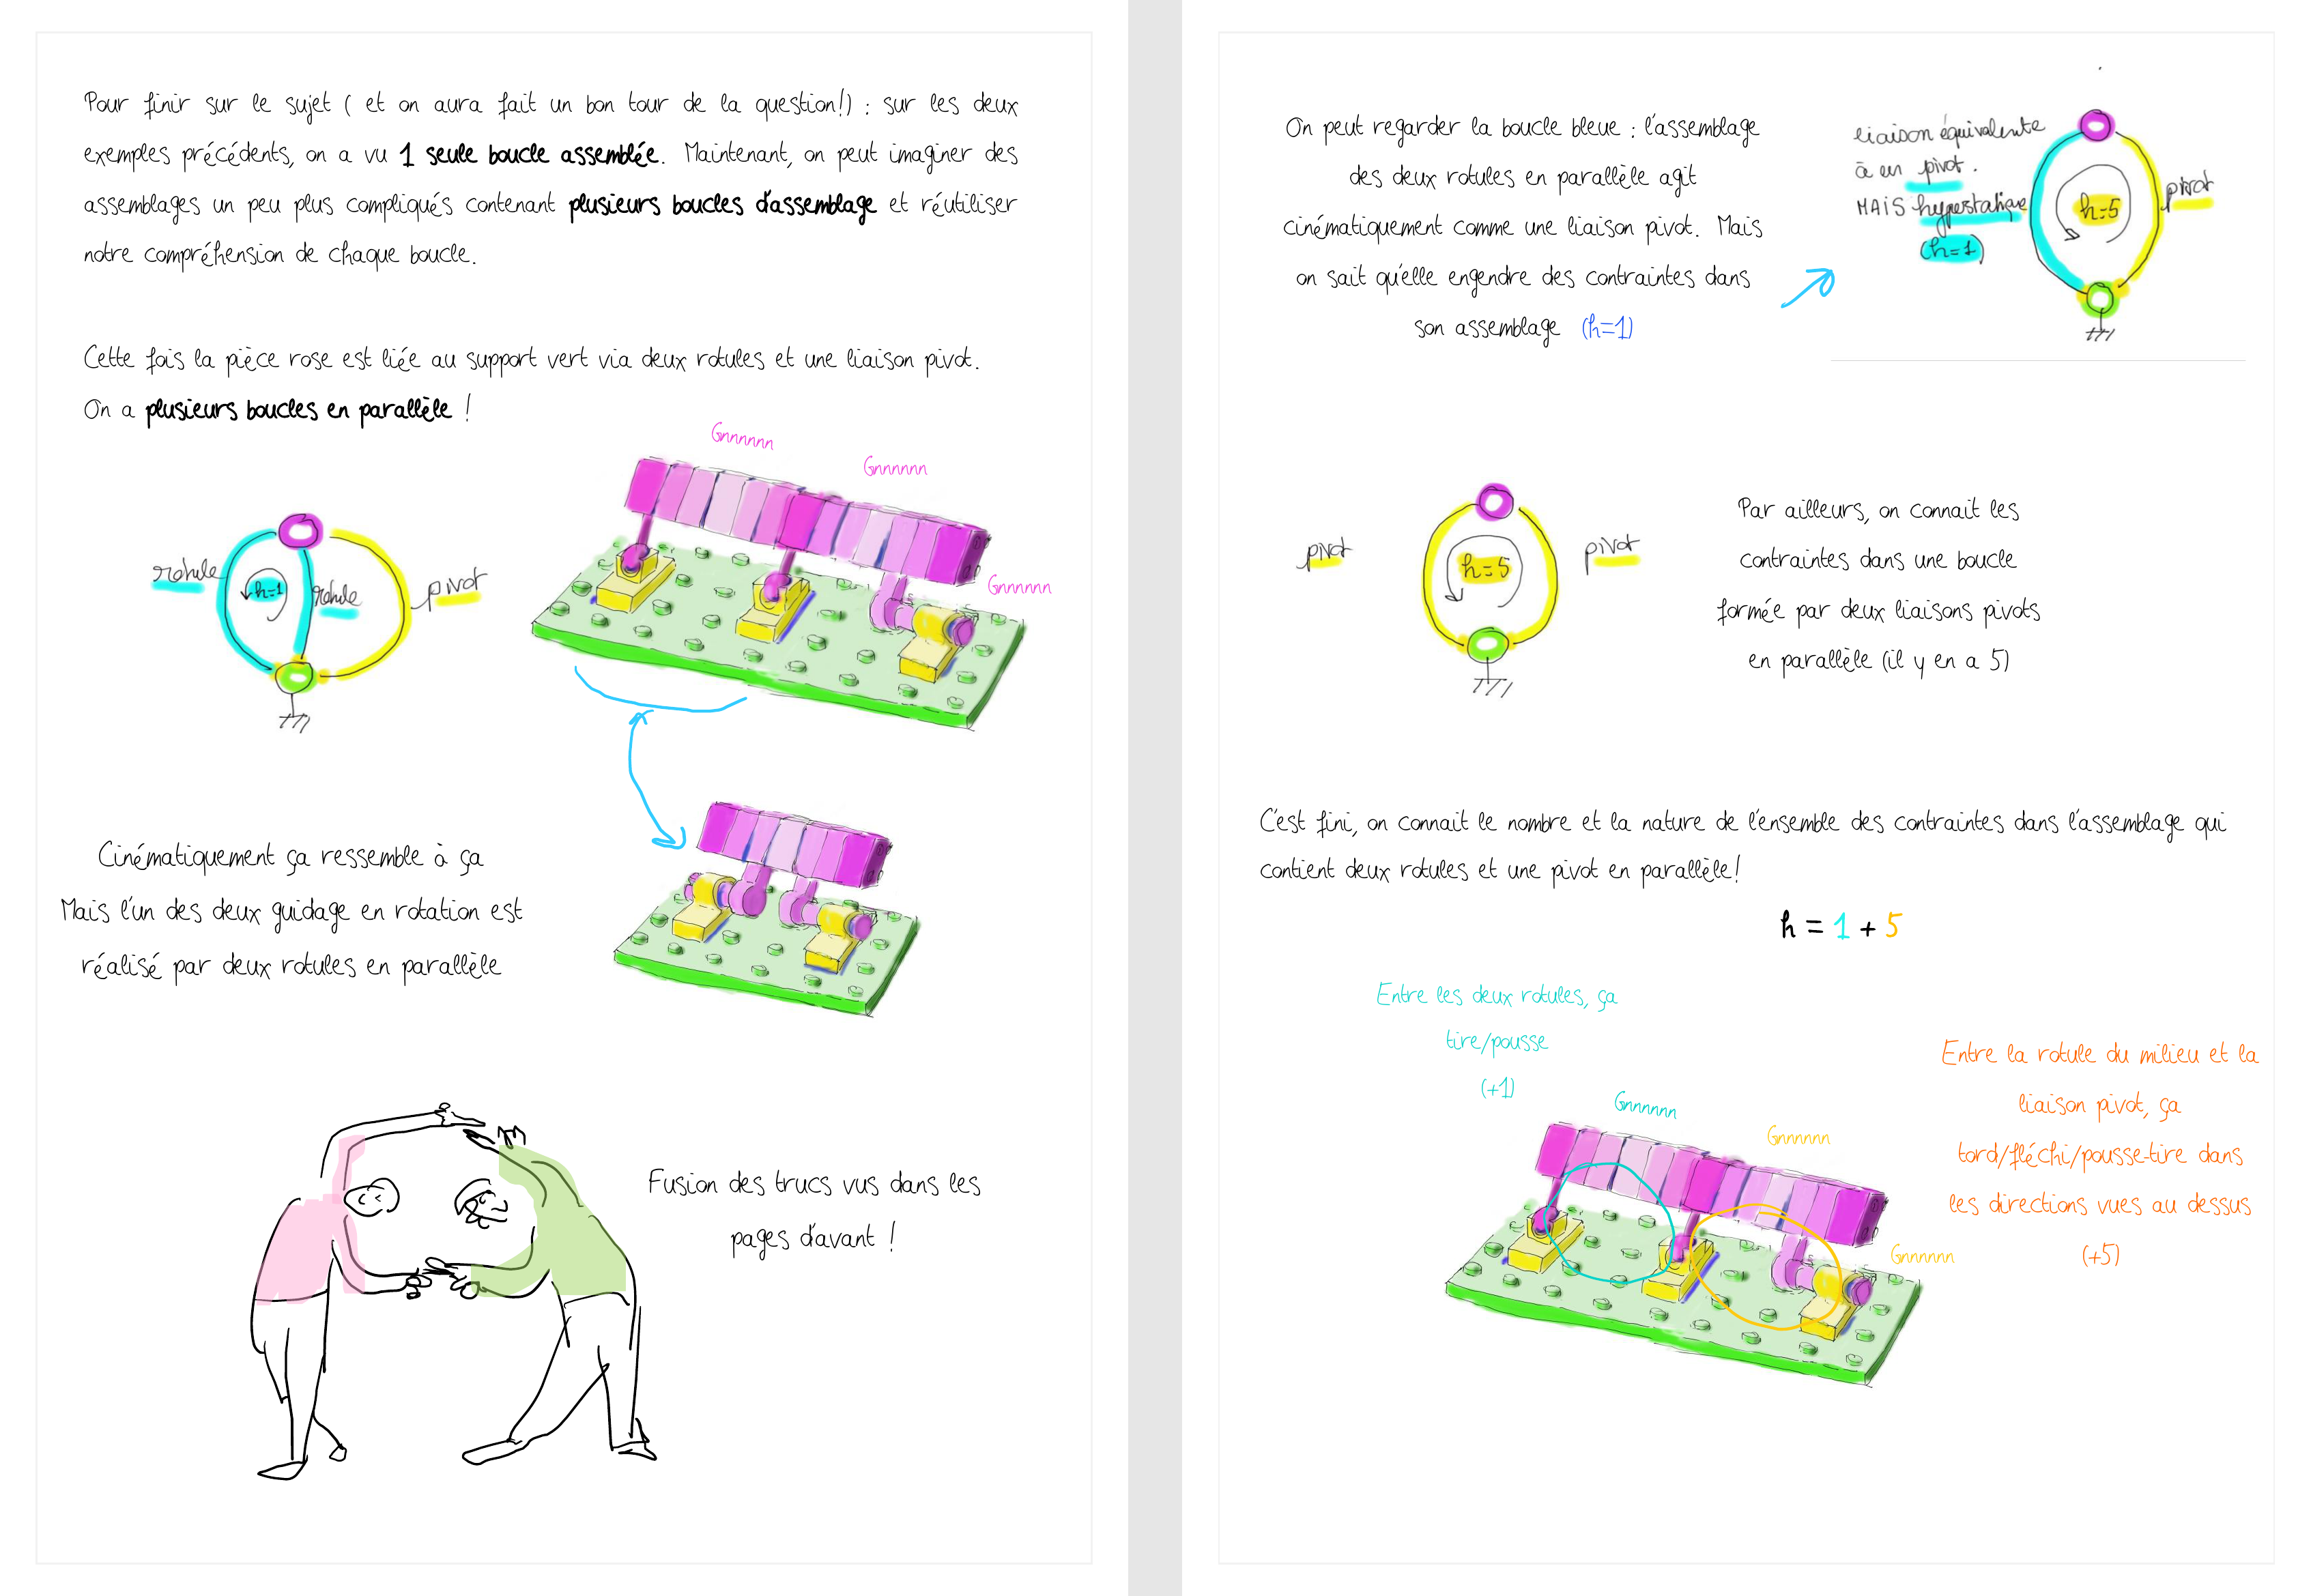 Pour finir sur le sujet ( et on aura fait un bon tour de la question!) : sur les deux
exemples précédents, on a vu 1 seule boucle assemblée. Maintenant, on peut imaginer des
assemblages un peu plus compliqués contenant plusieurs boucles d'assemblage et réutiliser
notre compréhension de chaque boucle.
Cette fois la pièce rose est liée au support vert via deux rotules et une liaison pivot.
On a plusieurs boucles en parallèle !
Gnnnnnn
Gnnnnnn
Gnnnnnn
rotule
h=1
rotule
pivot
Cinématiquement ça ressemble à ça
Mais l'un des deux guidage en rotation est
réalisé par deux rotules en parallèle
Fusion des trucs vus dans les
pages d'avant !
On peut regarder la boucle bleue : l'assemblage
des deux rotules en parallèle agit
cinématiquement comme une liaison pivot. Mais
on sait qu'elle engendre des contraintes dans
son assemblage (h=1)
liaison équivalente
à un pivot.
MAIS hyperstatique
(h=1)
h=5
pivot
pivot
h=5
pivot
Par ailleurs, on connait les
contraintes dans une boucle
formée par deux liaisons pivots
en parallèle (il y en a 5)
C'est fini, on connait le nombre et la nature de l'ensemble des contraintes dans l'assemblage qui
contient deux rotules et une pivot en parallèle!
h = 1 + 5
Entre les deux rotules, ça
tire/pousse
(+1)
Entre la rotule du milieu et la
liaison pivot, ça
tord/fléchi/pousse-tire dans
les directions vues au dessus
(+5)
Gnnnnnn
Gnnnnnn
Gnnnnnn